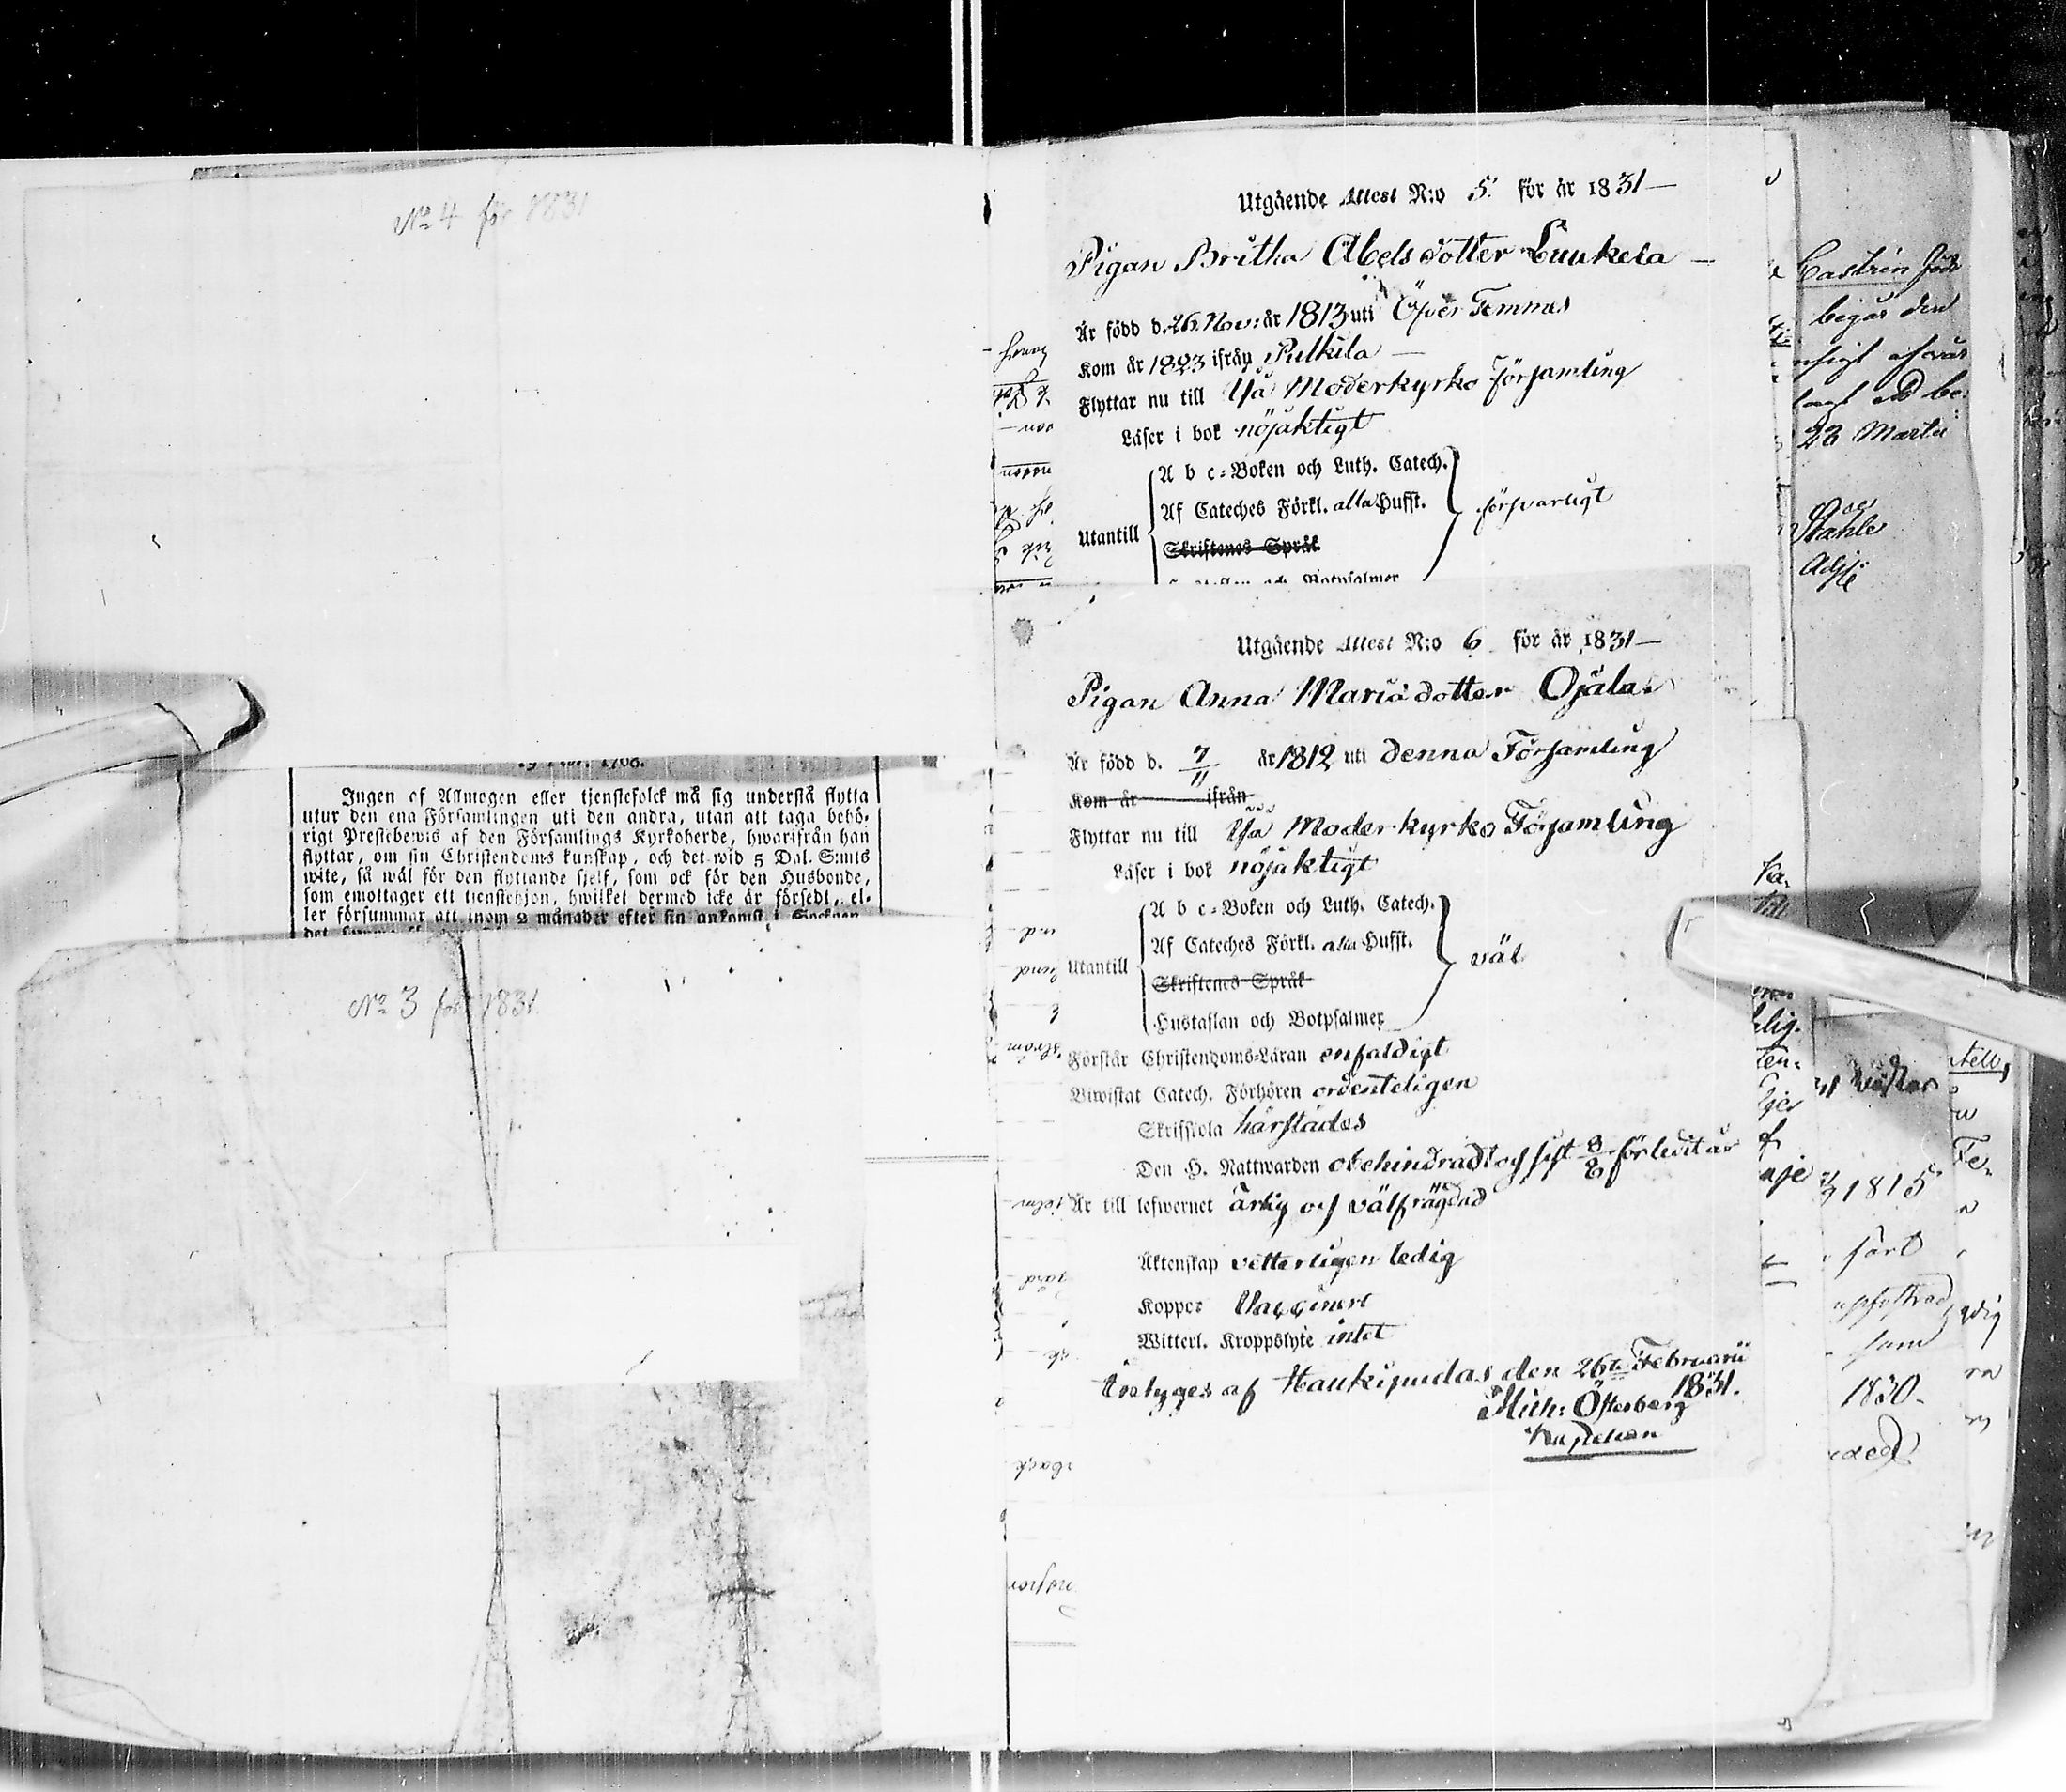 No 4 för 1831
Ingen af Allmogen eller tjenstefolck må sig understå flytta
utur den ena Församlingen uti den andra, utan att taga behö-
rigt Prestebewis af den Församlings Kyrkoherde, hwarifrån han
flyttar, om sin Christendoms kunskap, och det wid 5 Dal. S:mts
wite, så wäl för den flyttande sjelf, som ock för den Husbonde,
som emottager ett tjenstehjon, hwilket dermed icke är försedt, el-
ler försummar att inom 2 månader efter sin ankomst i Socknen
No 3 för 1831
Utgående Attest N:o 5. för år 1831 —
Pigan Britha Abelsdotter Luukela —
Är född d. 26 Nov: år 1813 uti Öfver Temmes
Kom år 1823 ifrån Pulkila —
Flyttar nu till Ijå Moderkyrko Församling
Läser i bok nöjaktigt
A b c-Boken och Luth. Catech.
Af Cateches Förkl. alla Hufst.
Utantill försvarligt
Skriftenes Språk
Utgående Attest N:o 6 för år 1831 —
Pigan Anna Mariädotter Ojala
Är född d. 7/11 år 1812 uti denna Församling
Kom år ifrån
Flyttar nu till Ijå Moderkyrko Församling
Läser i bok nöjaktigt
A b c-Boken och Luth. Catech.
Af Cateches Förkl. alla Hufst.
Utantill väl
Skriftenes Språk
Hustaflan och Botpsalmer
Förstår Christendoms-Läran enfaldigt
Biwistat Catech. Förhören ordenteligen
Skriftskola härstädes
Den H. Nattwarden obehindradt och sist 8/8 förledit år
Är till lefwernet ärlig och välfrägdad
Äktenskap vetterligen ledig
Koppor Vaccinerd
Witterl. Kroppslyte intet
Intyges af Haukipudas den 26te Februarii
1831.
Mich: Österberg
Kapellan
Castrén född
begär den
23 Martii
Adj:
1815
fört
uppfostrad
1830.